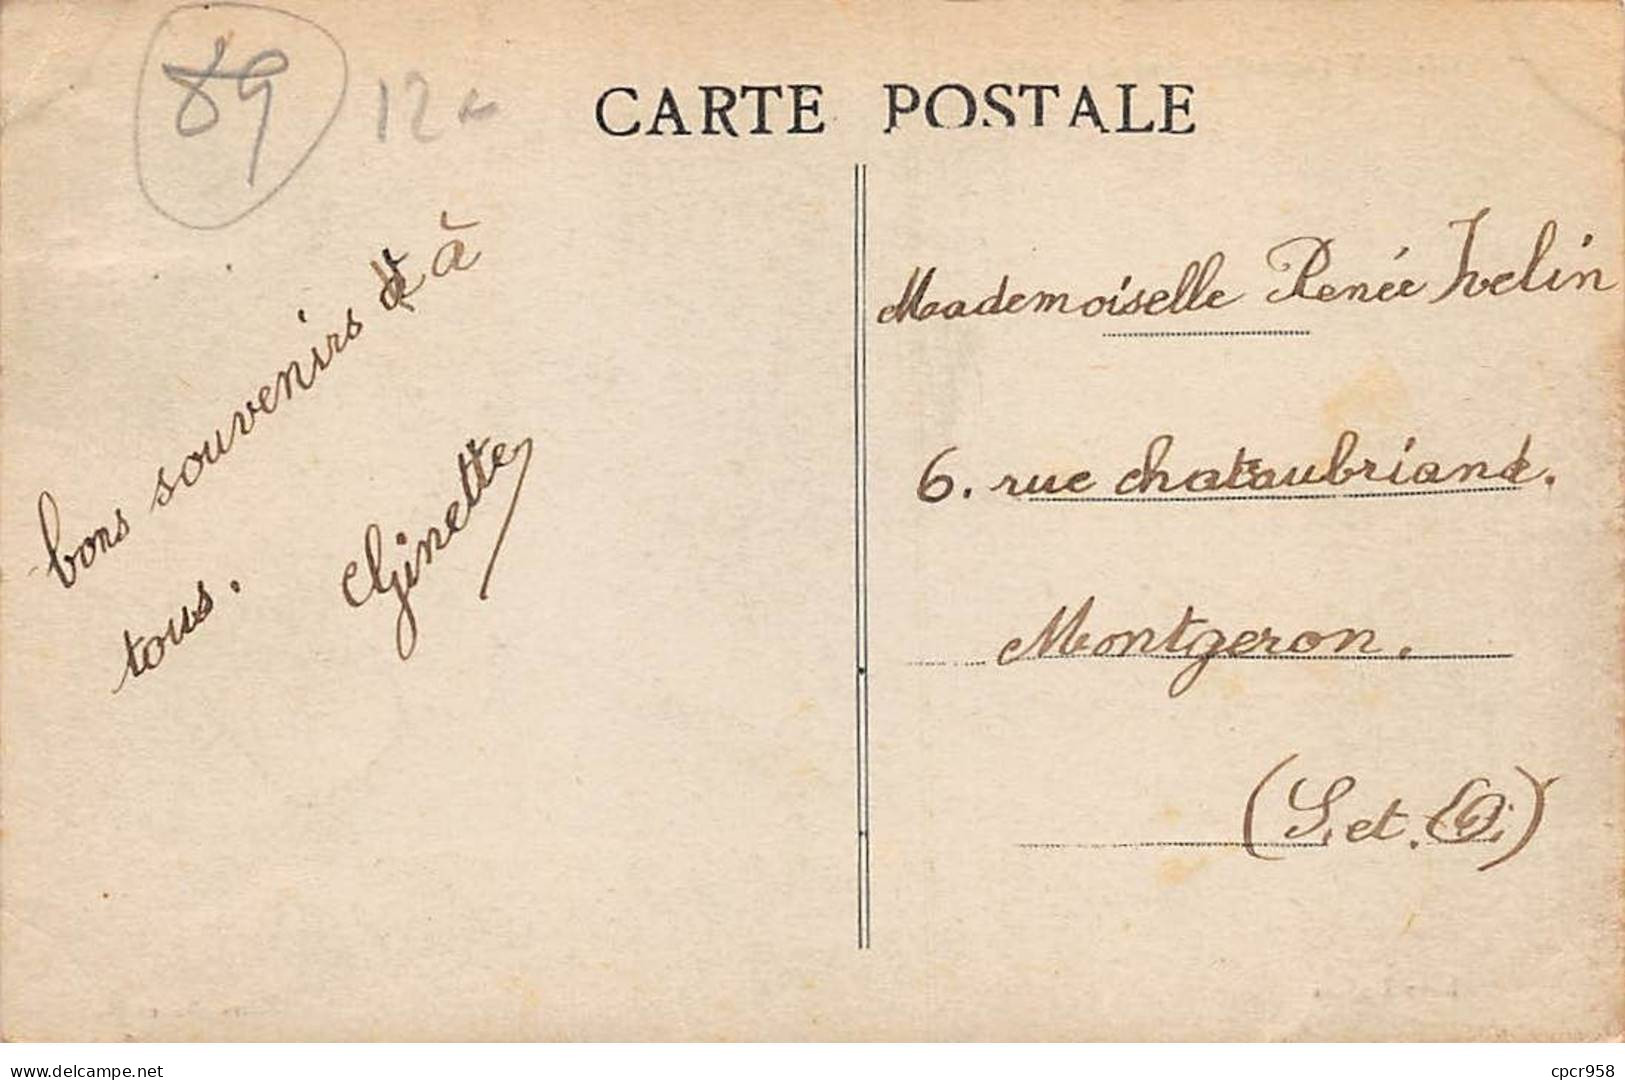 89 12
CARTE POSTALE
bons souvenirs à
tous.
Ginette
Mademoiselle Renée Ivelin
6. rue chateaubriand.
Montgeron.
(S. et. O.)
www.delcampe.net
cpcr958